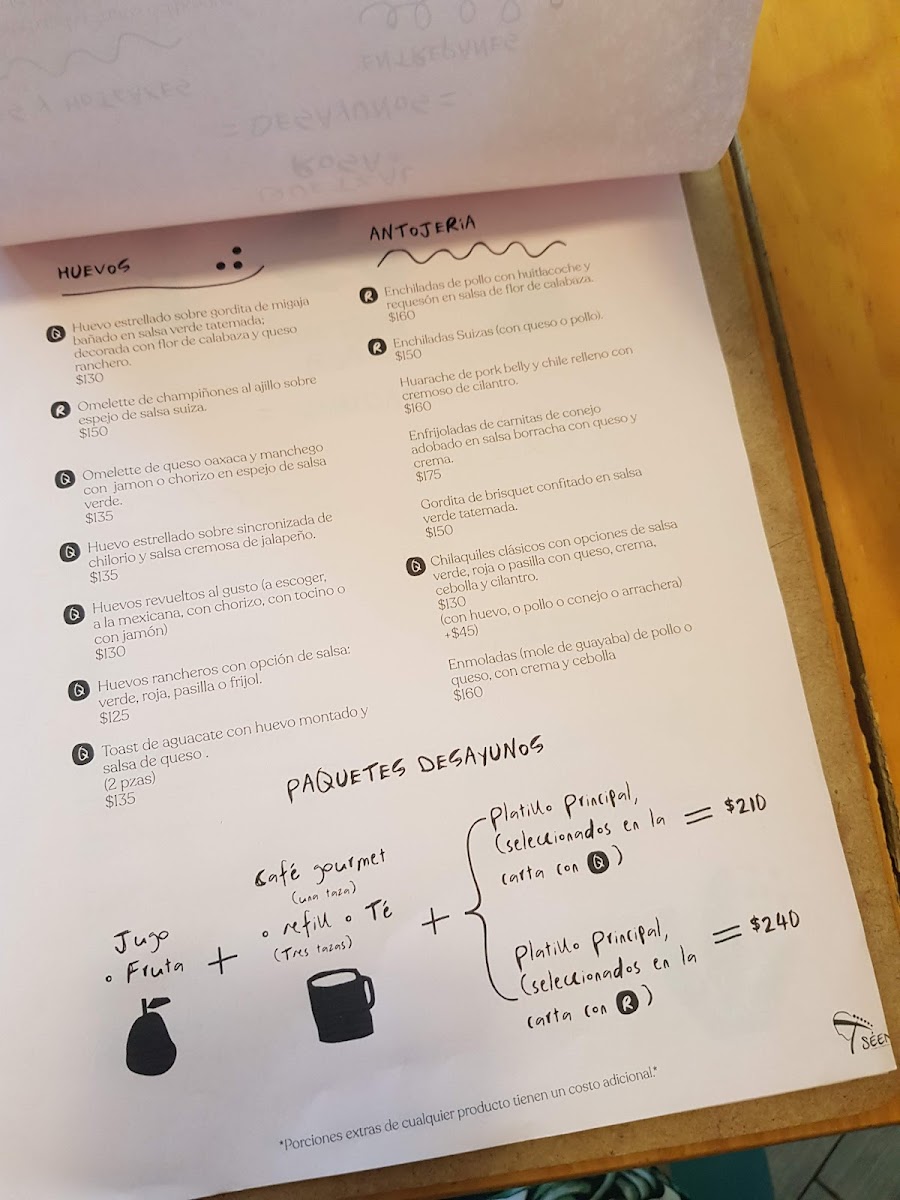 ENTREPANES
S Y HOTCAKES
= DESAYUNOS =
ROSA
HUEVOS
Q Huevo estrellado sobre gordita de migaja
bañado en salsa verde tatemada;
decorada con flor de calabaza y queso
ranchero.
$130
R Omelette de champiñones al ajillo sobre
espejo de salsa suiza.
$150
Q Omelette de queso oaxaca y manchego
con jamon o chorizo en espejo de salsa
verde.
$135
Q Huevo estrellado sobre sincronizada de
chilorio y salsa cremosa de jalapeño.
$135
Q Huevos revueltos al gusto (a escoger,
a la mexicana, con chorizo, con tocino o
con jamón)
$130
Q Huevos rancheros con opción de salsa:
verde, roja, pasilla o frijol.
$125
Q Toast de aguacate con huevo montado y
salsa de queso .
(2 pzas)
$135
ANTOJERIA
R Enchiladas de pollo con huitlacoche y
requesón en salsa de flor de calabaza.
$160
R Enchiladas Suizas (con queso o pollo).
$150
Huarache de pork belly y chile relleno con
cremoso de cilantro.
$160
Enfrijoladas de carnitas de conejo
adobado en salsa borracha con queso y
crema.
$175
Gordita de brisquet confitado en salsa
verde tatemada.
$150
Q Chilaquiles clásicos con opciones de salsa
verde, roja o pasilla con queso, crema,
cebolla y cilantro.
$130
(con huevo, o pollo o conejo o arrachera)
+$45)
Enmoladas (mole de guayaba) de pollo o
queso, con crema y cebolla
$160
PAQUETES DESAYUNOS
Jugo
o Fruta
+
Café gourmet
(una taza)
o refill o Té
(Tres tazas)
+
Platillo Principal,
(seleccionados en la
carta con Q)
= $210
Platillo Principal,
(seleccionados en la
carta con R)
= $240
SÉEN
*Porciones extras de cualquier producto tienen un costo adicional.*